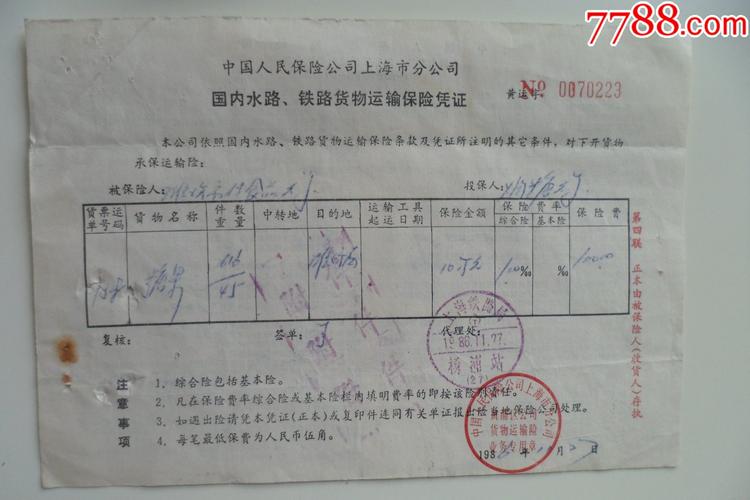 7788.com
中国人民保险公司上海市分公司
国内水路、铁路货物运输保险凭证
黄运字 No 0070223
本公司依照国内水路、铁路货物运输保险条款及凭证所注明的其它条件，对下开货物
承保运输险：
被保险人： 投保人：
货票运单号码 货物名称 件数重量 中转地 目的地 运输工具起运日期 保险金额 保险费率 综合险 基本险 保险费
糖果 616/45 10万元 1.00‰ ‰ 100.00
复核： 签单： 代理处：
附件
上海铁路局
1986.11.27.
杨浦站
(27)
第四联 正本由被保险人(收货人)存执
注意事项
1．综合险包括基本险。
2．凡在保险费率综合险或基本险栏内填明费率的即按该险别责任。
3．如遇出险请凭本凭证(正本)或复印件连同有关单证报出险当地保险公司处理。
4．每笔最低保费为人民币伍角。
中国人民保险公司上海市分公司
货物运输险
业务专用章
198 年 月 27日